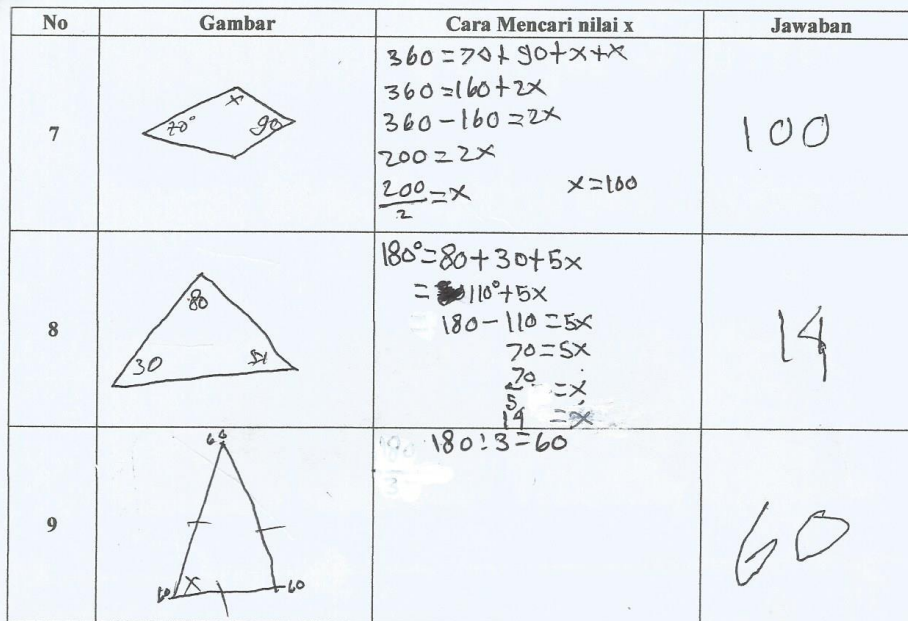 No Gambar Cara Mencari nilai x Jawaban
7
x
70°
90
360 = 70 + 90 + x + x
360 = 160 + 2x
360 - 160 = 2x
200 = 2x
200/2 = x x = 100
100
8
80
30
5x
180° = 80 + 30 + 5x
= 110° + 5x
180 - 110 = 5x
70 = 5x
70/5 = x
14 = x
14
9
60
60 x 60
180 : 3 = 60
180/3
60